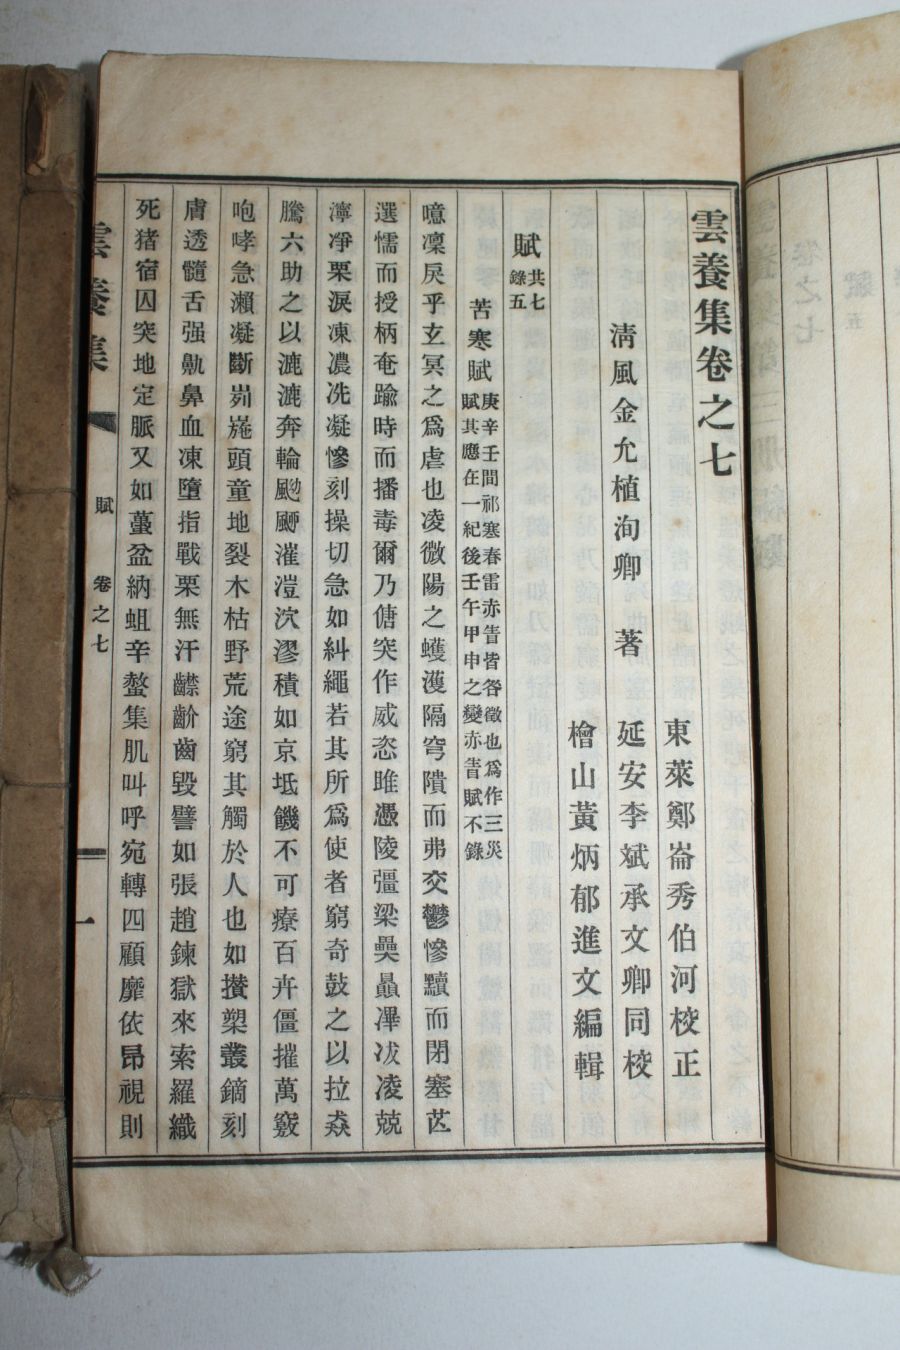 雲養集卷之七
東萊鄭崙秀伯河校正
淸風金允植洵卿 著
延安李斌承文卿同校
檜山黃炳郁進文編輯
賦 共七錄五
苦寒賦 庚辛壬間祁寒春雷赤眚皆咎徵也爲作三災賦其應在一紀後壬午甲申之變赤眚賦不錄
噫凜戾乎玄冥之爲虐也凌微陽之蠖濩隔穹隤而弗交鬱慘黷而閉塞苙
選懦而授柄奄踰時而播毒爾乃傏突作威恣睢憑陵彊梁奰贔滭冹凌兢
濘凈栗淚凍濃冼凝慘刻操切急如糾繩若其所爲使者窮奇鼓之以拉猋
騰六助之以漉漉奔輪颼飀漼溰泬漻積如京坻饑不可療百卉僵摧萬竅
咆哮急瀨凝斷峛崺頭童地裂木枯野荒途窮其觸於人也如攢槊叢鏑刻
膚透髓舌强鼽鼻血凍墮指戰栗無汗齽齘齒毀譬如張趙鍊獄來索羅織
死猪宿囚突地定脈又如蠆盆納蛆辛螫集肌叫呼宛轉四顧靡依昂視則
雲養集 賦 卷之七 一